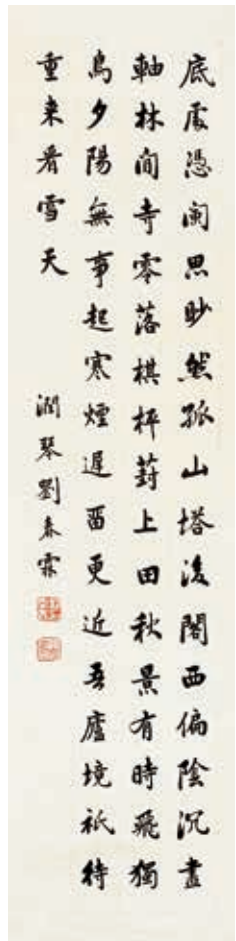 底處憑闌思眇然孤山塔後閣西偏陰沉畫
軸林間寺零落棋枰葑上田秋景有時飛獨
鳥夕陽無事起寒煙遲畱更近吾廬境祇待
重来看雪天 潤琴劉春霖